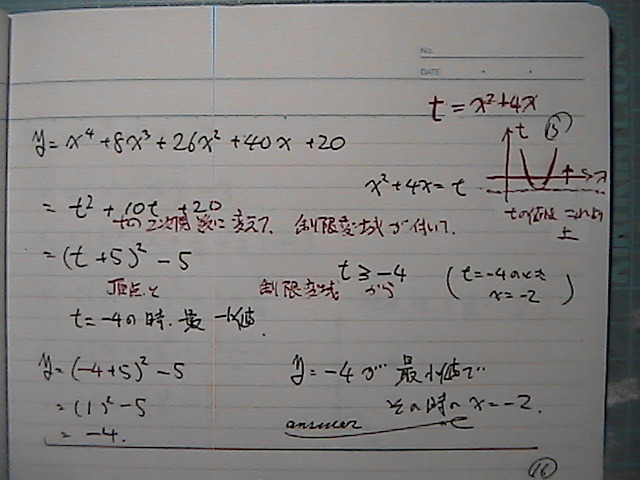 No.
DATE
t = x² + 4x
y = x⁴ + 8x³ + 26x² + 40x + 20
t
15
x
x² + 4x = t
= t² + 10t + 20
tの値は これより
上
tの2次関数に変えて、制限変域が付いて.
= (t + 5)² − 5
t ≧ −4
(t = −4のとき
x = −2)
頂点と 制限変域 から
t = −4の時、最小値.
y = (−4+5)² − 5
y = −4が 最小値で
= (1)² − 5
その時の x = −2.
= −4.
answer
16